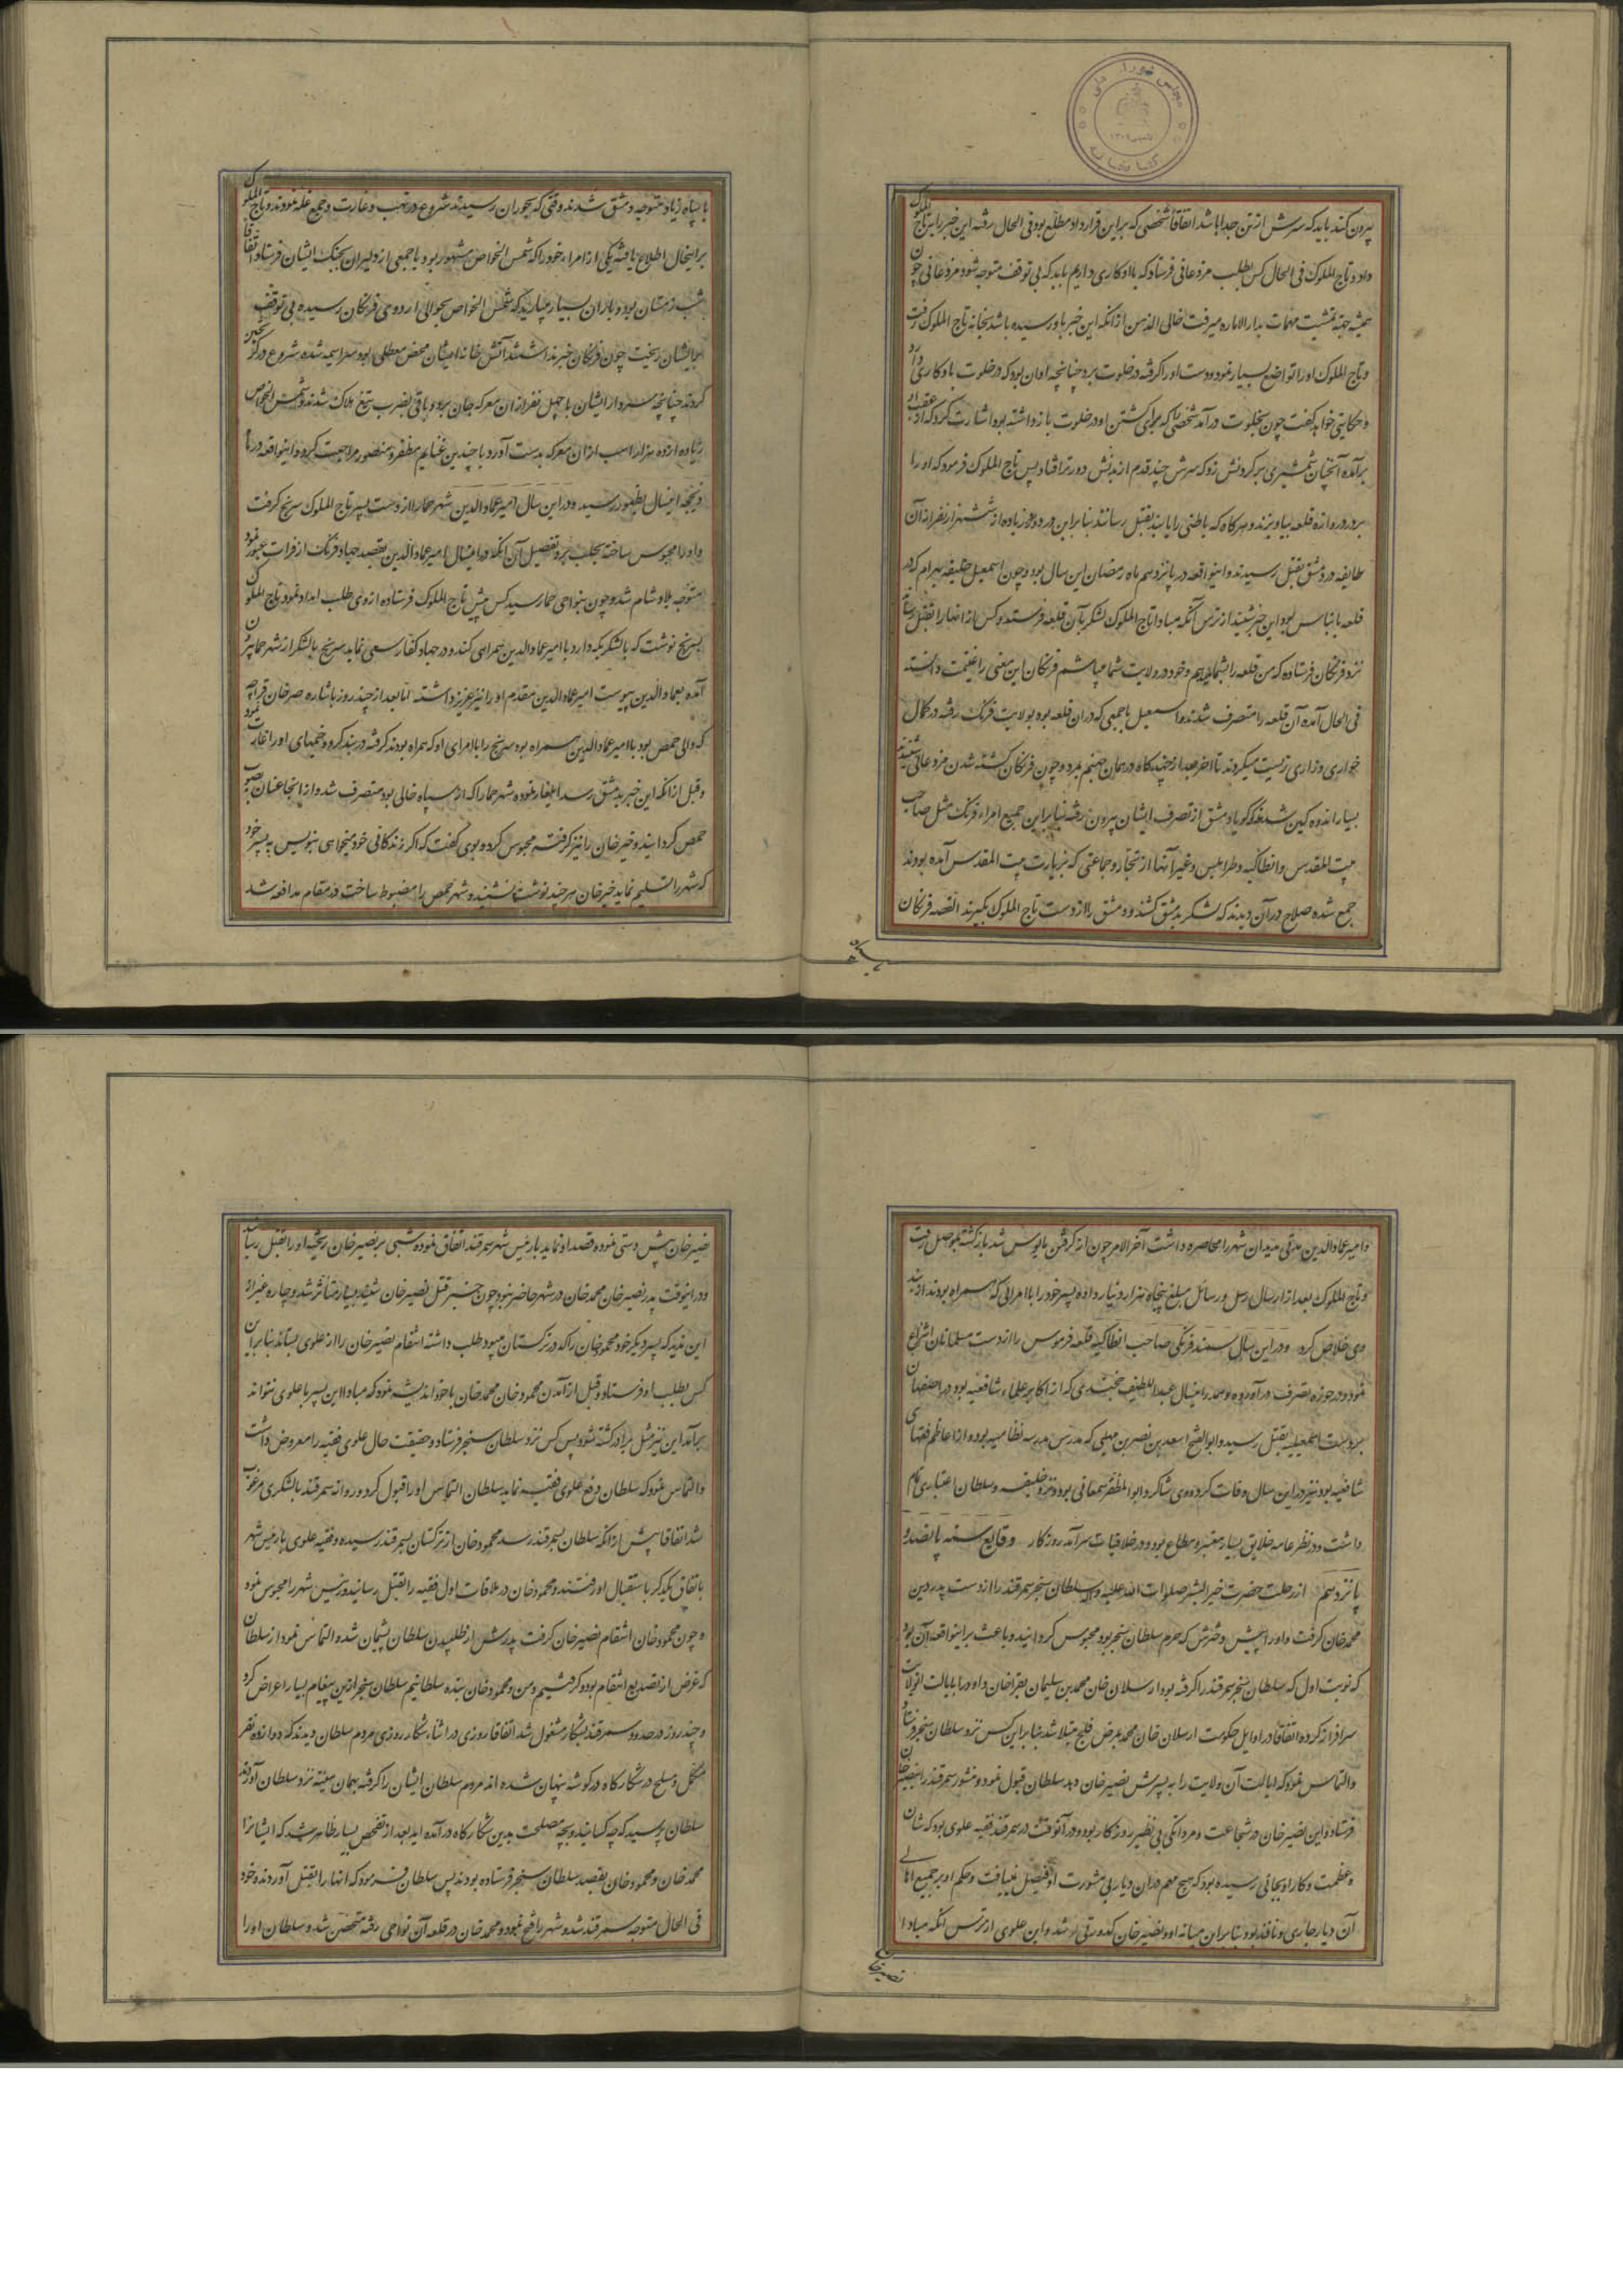 مجلس شورای ملی
کتابخانه
بیرون کنند باید که سرش از تن جدا باشد اتفاقا شخصی که بر این قرارداد مطلع بود فی الحال رفته این خبر را بتاج الملوک
داد و تاج الملوک فی الحال کس بطلب مزدعانی فرستاد که با او کاری داریم باید که بی توقف متوجه شود مزدعانی چون
همیشه جهة تمشیت مهمات بدار الاماره میرفت خالی الذهن از آنکه این خبر باو رسیده باشد بخانه تاج الملوک رفت
و تاج الملوک او را تواضع بسیار نمود و دست او را گرفته در خلوت برد چنانچه اوان بود که در خلوت با او کاری دارد
و حکایتی خواهد گفت چون بخلوت درآمد شخصی را که برای کشتن او در خلوت باز داشته بود اشارت کرد که از عقب او
برآمده آنچنان شمشیری بر گردنش زد که سرش چند قدم از بدنش دورتر افتاد پس تاج الملوک فرمود که او را
بر در دروازه قلعه بیاویزند و هر کاه که باطنی را یابند بقتل رسانند بنابراین در دو روز زیاده از ششهزار نفر از آن
طایفه در دمشق بقتل رسیدند و اینواقعه در پانزدهم ماه رمضان این سال بود و چون اسمعیل خلیفه بهرام که در
قلعه بانیاس بود این خبر شنید از ترس آنکه مبادا تاج الملوک لشکر بآن قلعه فرستد و کس از انها را بقتل رساند
نزد فرنکان فرستاده که من قلعه را بشما میدهم و خود در ولایت شما میباشم فرنکان این معنی را غنیمت دانسته
فی الحال آمده آن قلعه را متصرف شدند و اسمعیل با جمعی که در ان قلعه بود بولایت فرنک رفته در کمال
خواری و زاری زیست میکردند تا اخر بعد از چند کاه در همان جهنم بمرد و چون فرنکان کشته شدن مزدعانی شنیدند
بسیار اندوهکین شدند که کویا دمشق از تصرف ایشان بیرون رفته بنابراین جمیع امراء فرنک مثل صاحب
بیت المقدس و انطاکیه و طرابلس و غیر آنها از تجار و جماعتی که بزیارت بیت المقدس آمده بودند
جمع شده صلاح در آن دیدند که لشکر بدمشق کشند و دمشق را از دست تاج الملوک بکیرند القصه فرنکان
با سپاه
با سپاه زیاد متوجه دمشق شدند وقتی که بحوران رسیدند شروع در نهب و غارت و جمع غله نمودند و تاج الملوک
بر اینحال اطلاع یافته یکی از امراء خود را که شمس الخواص مشهور بود با جمعی از دلیران بجنک ایشان فرستاد اتفاقا
شب زمستان بود و باران بسیار میبارید که شمس الخواص بحوالی اردوی فرنکان رسیده بی توقف
بر ایشان ریخت چون فرنکان خبر نداشتند آتش خانه ایشان محض معطلی بود سراسیمه شده شروع در کریختن
کردند چنانچه سردار ایشان با چهل نفر از ان معرکه جان برد و باقی بضرب تیغ هلاک شدند و شمس الخواص
زیاده از ده هزار اسب از ان معرکه بدست آورد با چندین غنایم مظفر و منصور مراجعت کرد و اینواقعه در ماه
ذیحجه اینسال بظهور رسید و در این سال امیر عماد الدین شهر حما را از دست پسر تاج الملوک سونج کرفت
و او را محبوس ساخته بحلب برد تفصیل آن آنکه در اینسال امیر عماد الدین بقصد جهاد فرنک از فرات عبور نمود
متوجه بلاد شام شد و چون بنواحی حما رسید کس پیش تاج الملوک فرستاده از وی طلب امداد نمود تاج الملوک
بسونج نوشت که با لشکریکه دارد با امیر عماد الدین همراهی کند و در جهاد کفار سعی نماید سونج با لشکر از شهر حما بیرون
آمده بعماد الدین پیوست امیر عماد الدین مقدم او را نیز عزیز داشته اما بعد از چند روز باشاره خیرخان قراجه
که والی حمص بود با امیر عماد الدین همراه بود سونج را با امرای او که همراه بودند کرفته در بند کرد و خیمهای او را غارت نمود
و قبل از آنکه این خبر بدمشق رسد ایلغار نموده شهر حما را که از سپاه خالی بود متصرف شد و از اینجا عنان بصوب
حمص کردانید و خیرخان را نیز کرفته محبوس کرده بوی کفت که اکر زندکانی خود میخواهی بنویس به پسر خود
که شهر را تسلیم نماید خیرخان هر چند نوشت نشنید و شهر حمص را مضبوط ساخت در مقام مدافعه شد
و امیر عماد الدین مدتی مدید ان شهر را محاصره داشت آخر الامر چون از کرفتن مایوس شد بازکشته بموصل رفت
و تاج الملوک بعد از ارسال رسل و رسائل مبلغ پنجاه هزار دینار داده پسر خود را با امرایی که همراه بودند از بند
وی خلاص کرد و در این سال سمند فرنکی صاحب انطاکیه قلعه قدموس را از دست مسلمانان انتزاع
نمود و در حوزه تصرف درآورد و هم در اینسال عبد اللطیف خجندی که از اکابر علماء شافعیه بود در اصفهان
بر دست اسمعیلیه بقتل رسید و ابو الفتح اسعد بن نصر بن میهنی که مدرس مدرسه نظامیه بود و از اعاظم فقهای
شافعیه بود نیز در این سال وفات کرد و وی شاکرد ابو المظفر سمعانی بود و نزد خلیفه و سلطان اعتباری تمام
داشت و در نظر عامه خلایق بسیار معتبر و مطاع بود و در خلاقیات سرآمد روزکار وقایع سنه پانصد و
پانزدهم از رحلت حضرت خیر البشر صلوات الله علیه و آله سلطان سنجر سمرقند را از دست پدر زن
محمد خان کرفت و او را پیش دخترش که حرم سلطان سنجر بود محبوس کردانید و باعث بر اینواقعه آن بود
که نوبت اول که سلطان سنجر سمرقند را کرفته بود ارسلان خان محمد بن سلیمان بقراخان داد و را بایالت انولایت
سرافراز کرده اتفاقا در اوایل حکومت ارسلان خان محمد بمرض فلج مبتلا شد بنابراین کس نزد سلطان سنجر فرستاد
و التماس نمود که ایالت آن ولایت را به پسرش نصیر خان دهد سلطان قبول نمود و منشور سمرقند را بنصیر خان
فرستاد و این نصیر خان در شجاعت و مردانکی بی نظیر روزکار بود و در آنوقت در سمرقند فقیه علوی بود که شان
و عظمت و کار او بجائی رسیده بود که هیچ مهم در ان دیار بی مشورت او فیصل نمییافت و حکم او بر جمیع اهالی
آن دیار جاری و نافذ بود بنابر این میانه او و نصیر خان کدورتی شد و این علوی از ترس آنکه مبادا
نصیر خان
نصیر خان پیش دستی نموده قصد او نماید با رئیس شهر سمرقند اتفاق نموده شبی بر نصیر خان ریخته او را بقتل رساند
و در اینوقت پدر نصیر خان محمد خان در شهر حاضر نبود چون خبر قتل نصیر خان شنید بسیار متاثر شد و چاره غیر از
این ندید که پسر دیکر خود محمود خان را که در ترکستان میبود طلب داشته انتقام نصیر خان را از علوی بستاند بنابراین
کس بطلب او فرستاد و قبل از آمدن محمود خان محمد خان با خود اندیشه نمود که مبادا این پسر با علوی نتواند
برآمد این نیز مثل برادر کشته شود پس کس نزد سلطان سنجر فرستاد و حقیقت حال علوی فقیه را معروض داشت
و التماس نمود که سلطان دفع علوی فقیه نماید سلطان التماس او را قبول کرد و روانه سمرقند با لشکری مرغوب
شد اتفاقا پیش از آنکه سلطان بسمرقند رسد محمود خان از ترکستان بسمرقند رسیده و فقیه علوی با رئیس شهر
باتفاق یکدیکر باستقبال او رفتند و محمود خان در ملاقات اول فقیه را بقتل رسانید و رئیس شهر را محبوس نمود
و چون محمود خان انتقام نصیر خان کرفت پدرش از طلبیدن سلطان پشیمان شده التماس نمود از سلطان
که غرض از تصدیع انتقام بود و کرفتیم و من و محمود خان بنده سلطانیم سلطان سنجر از این پیغام بسیار اعراض کرد
و چند روز در حدود سمرقند بشکار مشغول شد اتفاقا روزی در اثناء شکار روزی مردم سلطان دیدند که دوازده نفر
مکمل و مسلح در شکارکاه در کوشه پنهان شده اند مردم سلطان ایشان را کرفته بهمان هیئته نزد سلطان آوردند
سلطان پرسید که چه کسانید و بچه مصلحت بدین شکارکاه درآمده اید بعد از تفحص بسیار ظاهر شد که ایشانرا
محمد خان و محمود خان بقصد سلطان سنجر فرستاده بودند پس سلطان فرمود که انها را بقتل آوردند و خود
فی الحال متوجه سمرقند شد و شهر را فتح نمود و محمد خان در قلعه آن نواحی رفته متحصن شد و سلطان او را